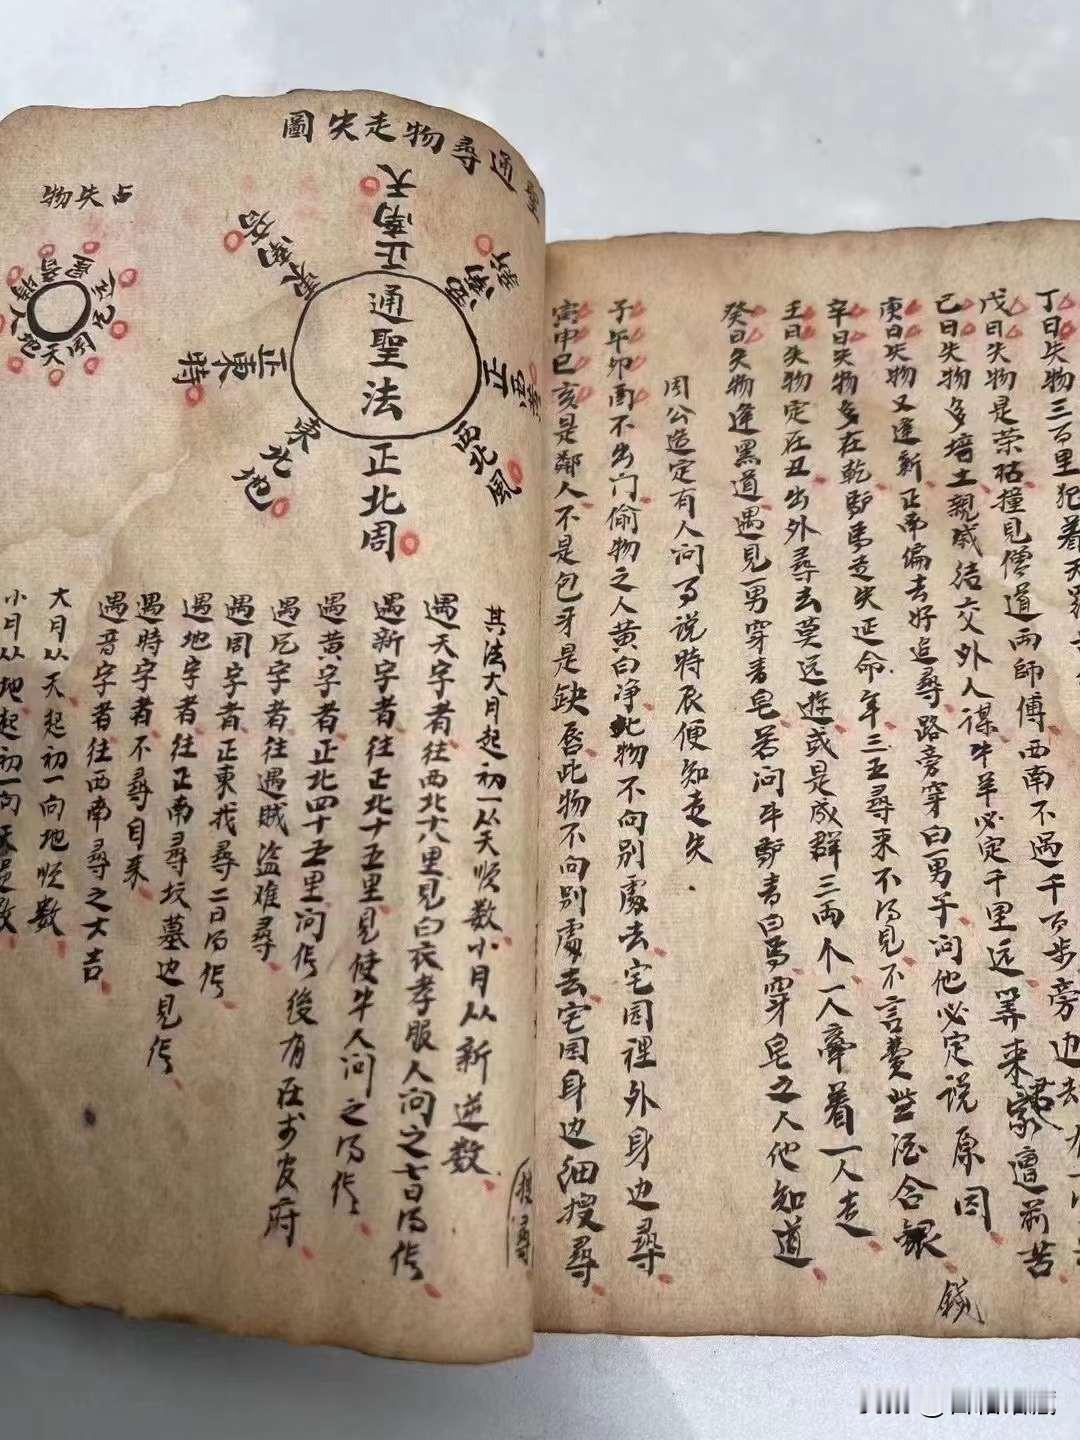 丁日失物三百里犯着天羅
戊日失物是荣枯撞見僧道両師傅西南不過千百步旁边去
己日失物多墙土親戚结交外人谋牛羊必定千里远算来家遭前苦
庚日失物又逢新正南偏去好追尋路旁穿白一男子问他必定说原因
辛日失物多在乾馿馬走失正命年三五尋来不得見不言费些酒合銀
錢
壬日失物定在丑出外尋去莫远遊或是成群三両个一人牽着一人走
癸日失物逢黑道遇見一男穿青皂若问牛馿青白馬穿皂之人他知道
周公造定有人问事说時辰便知走失
子午卯酉不出门偷物之人黄白净此物不向别處去宅园裡外身边尋
寅申巳亥是鄰人不是包牙是缺唇此物不向别處去宅园身边细搜尋
聖通尋物走失圖
正南天
西南新
西北風
正北周
東北地
正東時
通聖法
占失物
其法大月起初一从天顺数小月从新逆数
遇天字者往西北十八里見白衣孝服人问之七日得作
遇新字者往正北十五里見使牛人问之得作
遇黄字者正北四十五里问作後有在
遇字者往遇贼盗难尋
遇周字者正東找尋二日得作
遇地字者往正南尋坟墓边見作
遇時字者不尋自来
遇音字者往西南尋之大吉
大月从天起初一向地顺数
小月从地起初一向天逆数